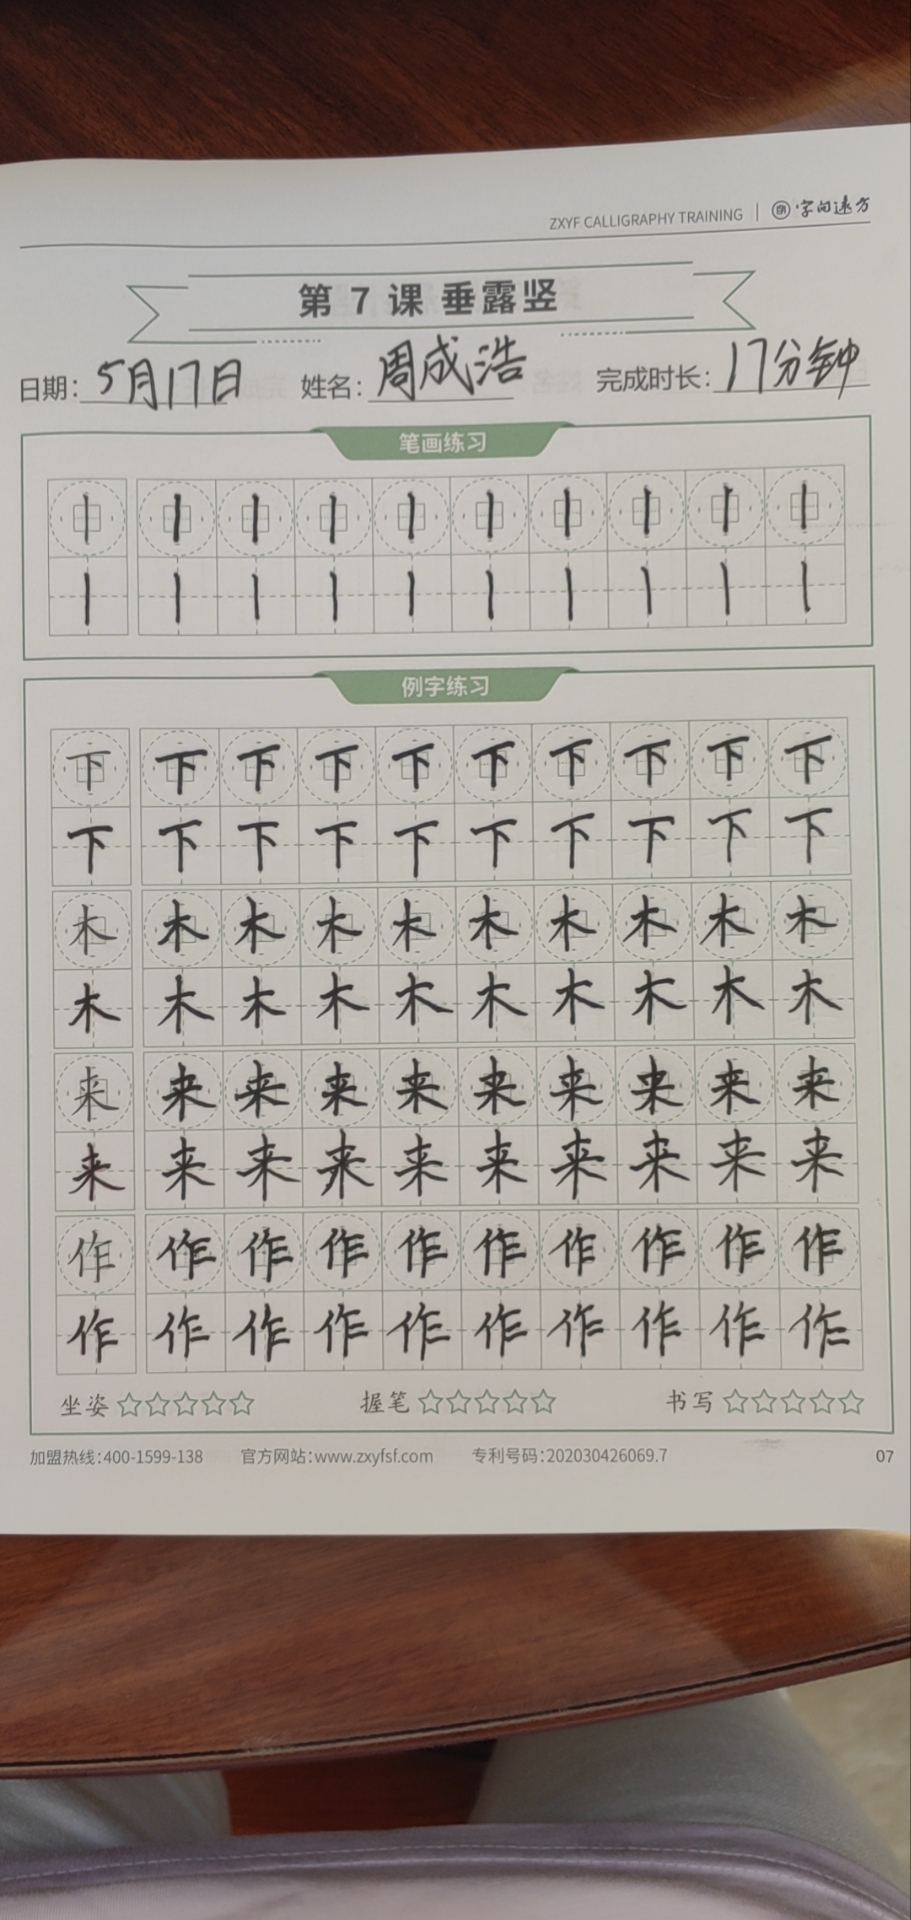 ZXYF CALLIGRAPHY TRAINING | 字向远方
第 7 课 垂露竖
日期：5月17日 姓名：周成浩 完成时长：17分钟
笔画练习
丨 丨 丨 丨 丨 丨 丨 丨 丨 丨
丨 丨 丨 丨 丨 丨 丨 丨 丨 丨
例字练习
下 下 下 下 下 下 下 下 下 下
下 下 下 下 下 下 下 下 下 下
木 木 木 木 木 木 木 木 木 木
木 木 木 木 木 木 木 木 木 木
来 来 来 来 来 来 来 来 来 来
来 来 来 来 来 来 来 来 来 来
作 作 作 作 作 作 作 作 作 作
作 作 作 作 作 作 作 作 作 作
坐姿 ☆☆☆☆☆ 握笔 ☆☆☆☆☆ 书写 ☆☆☆☆☆
加盟热线：400-1599-138 官方网站：www.zxyfsf.com 专利号码：202030426069.7 07